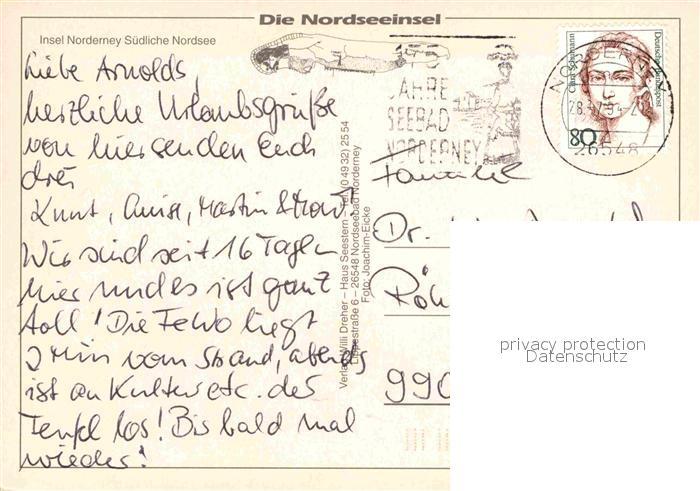 Die Nordseeinsel
Insel Norderney Südliche Nordsee
Liebe Arnolds,
herzliche Urlaubsgrüße
von hier senden Euch
drei
&
Wir sind seit 16 Tagen
hier und es ist ganz
toll! Die FeWo liegt
2 Min vom Strand, abends
ist an Kultur etc. der
Teufel los! Bis bald mal
wieder!
Verlag Willi Dreher – Haus Seestern – Tel. (0 49 32) 25 54
Lippestraße 6 – 26548 Nordseebad Norderney
Foto: Joachim-Eicke
JAHRE
SEEBAD
NORDERNEY
NORDERNEY
26548
Clara Schumann
Deutsche Bundespost
80
Familie
Dr.
Rön
990
privacy protection
Datenschutz